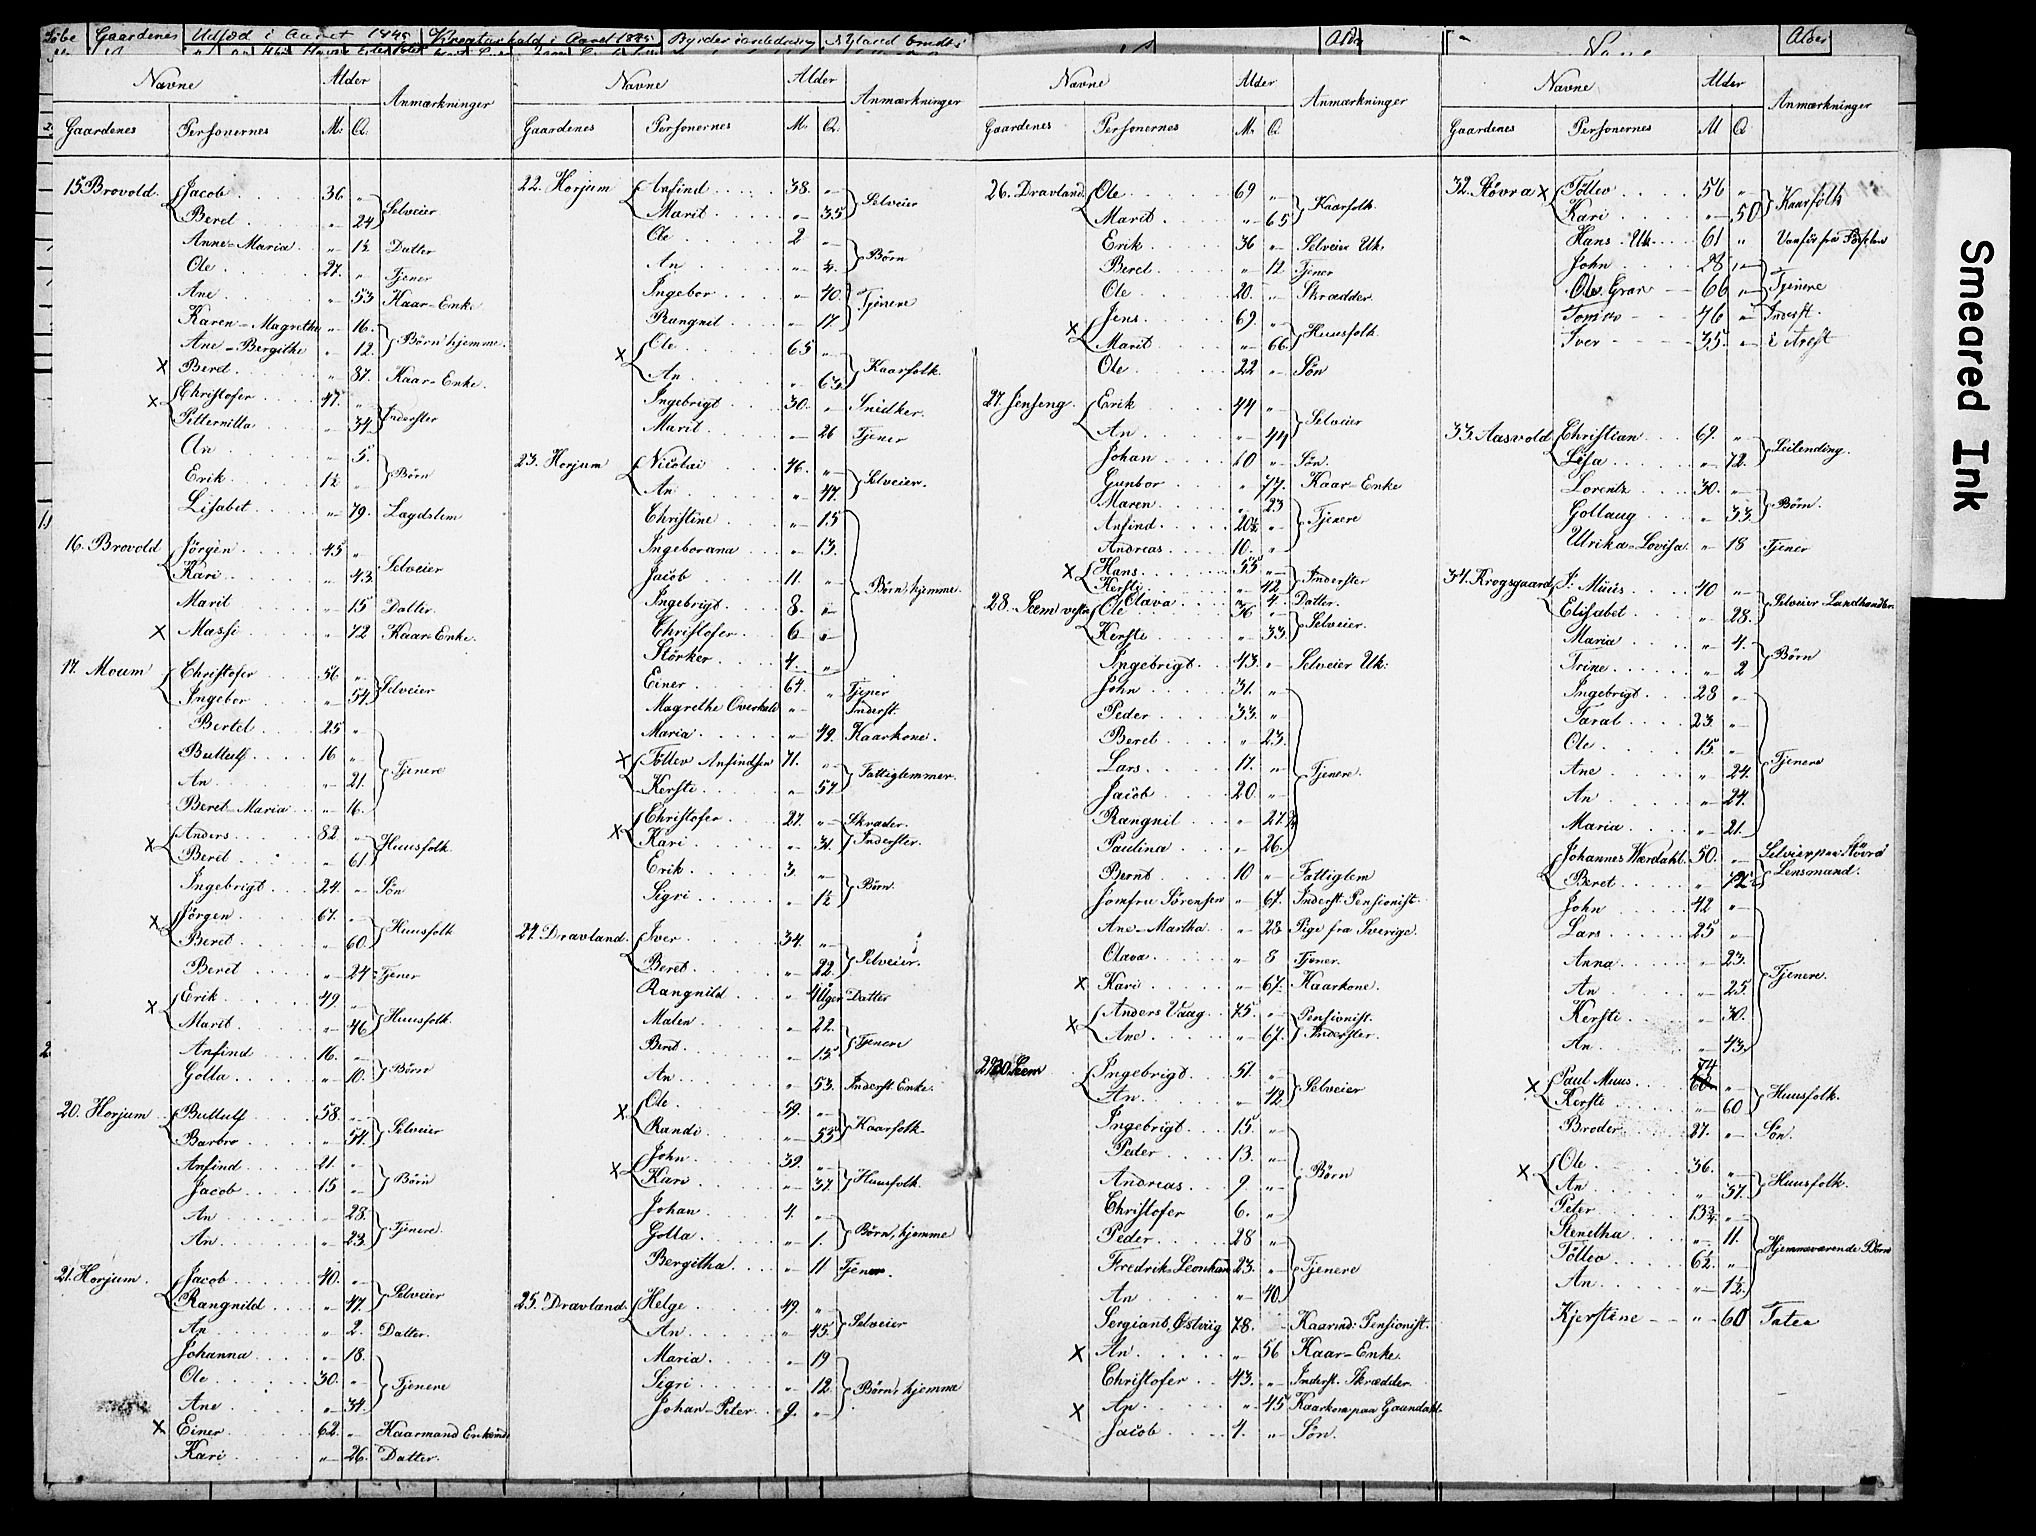 Gaardenes Udsæd i Aaret 1845 Kreaturhold i Aaret 1845
Navne Alder Anmærkninger
Gaardenes Personernes M: Q.
15. Brovold. Jacob 36 "
Beret " 24 Selveier
Anne-Maria " 1½ Datter
Ole 27. " Tjener
Ane " 53 Kaar-Enke
Karen-Magrethe " 16.
Ane-Bergithe " 12. Børn hjemme.
x Beret " 87. Kaar-Enke.
x Christofer 47. "
Petternilla " 34. Inderster
An " 5.
Erik 1½ " Børn
Lisabet " 79. Lægdslem
16. Brovold Jörgen 45 "
Kari " 43. Selveier
Marit " 15 Datter.
x Massi " 72 Kaar-Enke.
17. Moum Christofer 56 "
Ingebor " 54. Selveier
Bertel 25 "
Buttulf 16 "
An " 21. Tjenere
Beret-Maria " 16.
x Anders 82 "
Beret " 61 Huusfolk.
Ingebrigt 24. " Sön
x Jörgen 67. "
Beret " 60. Huusfolk
Beret " 24 Tjener
x Erik 49 "
Marit " 46 Huusfolk.
Anfind 16. "
Golla " 10. Børn
20. Horjum Buttulf 58. "
Barbro " 54. Selveier
Anfind 21. "
Jacob 15 " Børn
An " 28.
An " 23. Tjenere
21. Horjum. Jacob 40. "
Rangnild " 47. Selveier
An " 2. Datter.
Johanna " 18.
Ole 30. " Tjenere
Ane " 34.
x Einer 62. " Kaarmand Enkemd:
Kari " 26. Datter.
Navne Alder Anmærkninger
Gaardenes Personernes M. Q.
22. Horjum Anfind 38. "
Marit " 35 Selveier
Ole 2 "
An " 4. Børn
Ingebor " 40.
Rangnil " 17 Tjenere
x Ole 65 "
An " 63. Kaarfolk.
Ingebrigt 30. " Snidker.
Marit " 26 Tjener
23. Horjum Nicolai 46. "
An " 47. Selveier.
Christine " 15
Ingeborana " 13.
Jacob 11. "
Ingebrigt 8. " Børn, hjemme.
Christofer 6 "
Störker 4. "
Einer 64. " Tjener
Magrethe Overhald " Inderst.
Maria " 49. Kaarkone.
x Töllev Anfindsen 71. "
Kersti " 57 Fattiglemmer.
x Christofer 27. " Skræder.
Kari " 31. Inderster.
Erik 3. "
Sigri " 1½ Børn.
24. Dravland. Iver 34. "
Beret " 22. Selveier.
Rangnild " Uger Datter
Malen " 22.
Beret " 15. Tjenere
An " 53. Inderst Enke.
x Ole 59. "
Randi " 55 Kaarfolk
x John 39. "
Kari " 37. Huusfolk.
Johan 4. "
Golla " 1. Børn, hjemme
Bergitha " 11 Tjener.
25. Dravland. Helge 49. "
An " 45. Selveier
Maria " 19
Sigri " 12. Børn, hjemme
Johan-Peter 9. "
Navne Alder Anmærkninger
Gaardenes Personernes M. Q
26. Dravland Ole 69 "
Marit " 65 Kaarfolk.
Erik 36 " Selveier Uk.
Beret " 12 Tjener
Ole 20. " Skrædder.
x Jens 69. "
Marit " 66. Huusfolk.
Ole 22 " Sön
27. Jenseng. Erik 44 "
An " 44 Selveier
Johan 10 " Sön.
Gunbor " 77. Kaar-Enke
Maren " 23
Anfind 20½ " Tjenere
Andreas 10. "
x Hans 55 "
Kersti " 42 Inderster
Olava " 4. Datter.
28. Seem vestre Ole 36 "
Kersti " 33. Selveier.
Ingebrigt 43. " Selveier Uk:
John 31. "
Peder 33. "
Beret " 23.
Lars 17. "
Jacob 20. " Tjenere.
Rangnil " 27½
Paulina " 26.
Bernt 10 " Fattiglem
Jomfru Sörensen " 67. Inderst: Pensionist.
Ane-Martha " 28 Pige fra Sverige.
Olava " 8 Tjener.
x Kari " 67. Kaarkone.
x Anders Vaag 75. " Pensionist.
Ane " 67. Inderster.
30. Seem Ingebrigt 51 "
An " 42 Selveier
Ingebrigt 15. "
Peder 13. "
Andreas 9 " Børn
Christofer 6. "
Peder 28 "
Fredrik-Leonhard 23. " Tjenere
An " 40.
Sergiant Østviig 78. Kaarmd: Pensionist.
x An " 56 Kaar-Enke.
Christofer 43. " Inderst. Skrædder.
x An " 45 Kaarkone paa Gaundahl.
Jacob 4. " Sön.
Navne Alder Anmærkninger
Gaardenes Personernes M Q
32. Stövra x Töllev 56 "
Kari " 50 Kaarfolk
Hans Uk. 61 "
John 28 "
Ole Gran 66 " Tjenere
46 " Inderst.
Iver 35. " i Arest
33. Aasvold Christian 69. "
Lisa " 72. Leilending.
Lorentz 30. "
Gollaug " 33. Børn.
Ulrika-Lovisa " 18 Tjener
34. Krogsgaard J: Müüs 40 "
Elisabet " 28. Selveier Landhandler.
Maria " 4.
Trine " 2 Børn
Ingebrigt 28 "
Taral 23. "
Ole 15. "
Ane " 24. Tjenere
An " 24.
Maria " 21.
Johannes Wærdahl 50. " Selveier paa Stövra
Beret " Lensmand.
John 42 "
Lars 25 "
Anna " 23.
An " 25. Tjenere.
Kersti " 30.
An " 43.
x Paul Muus 74 "
Kersti " 60 Huusfolk.
Broder 27. " Sön.
x Ole 36. "
An " 37. Huusfolk.
Peter 13¾ "
Stenetha " 11.
Töllev 6½ " Hjemmeværende Børn
An " 1½
Kjerstine " 60 Tater
Smeared Ink